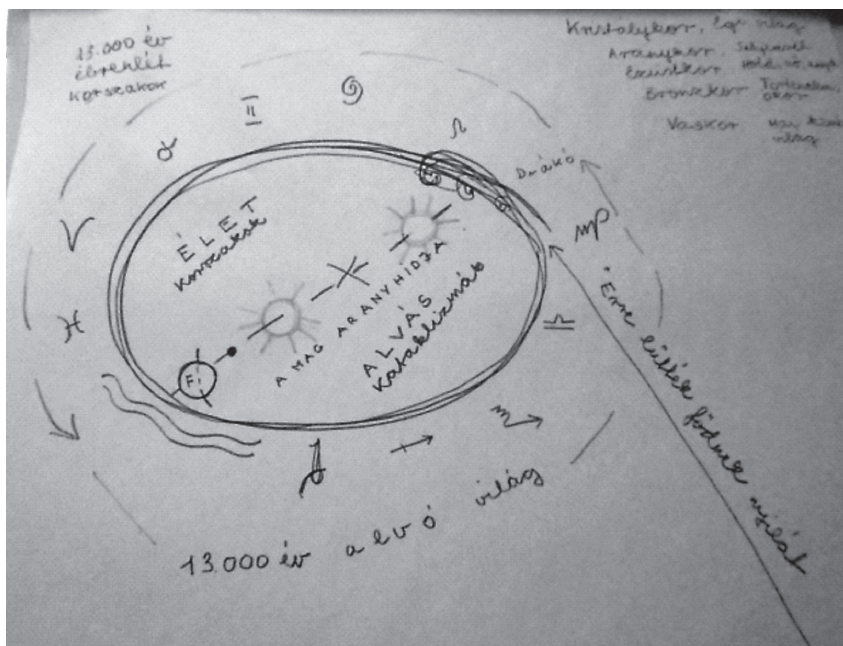 13.000 év
ébrenlét
korszakok
Kristálykor, Égi világ
Aranykor
Ezüstkor
Bronzkor
Vaskor
világ
Drákó
ÉLET
Korszakok
A MAG ARANYHIDJA
ALVÁS
Kataklizmák
F
"Erre lőtték ősödnek nyilát
13.000 év alvó világ